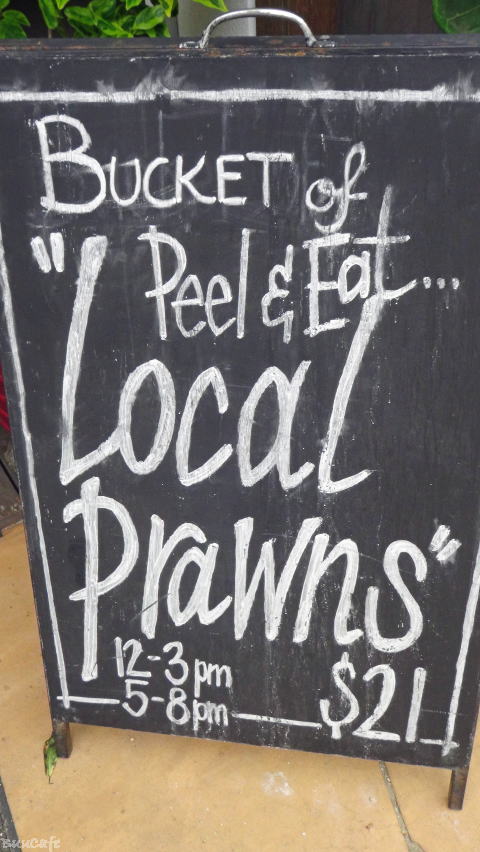 BUCKET of
"Peel & Eat...
Local
Prawns"
12-3pm
5-8pm $21